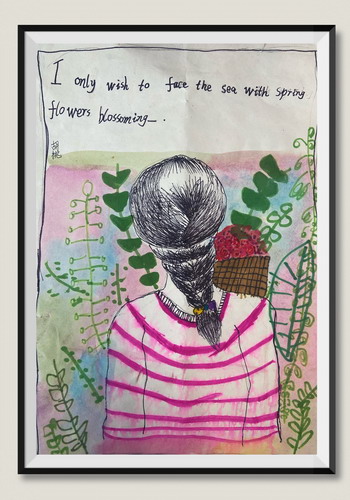 I only wish to face the sea with spring
flowers blossoming_.